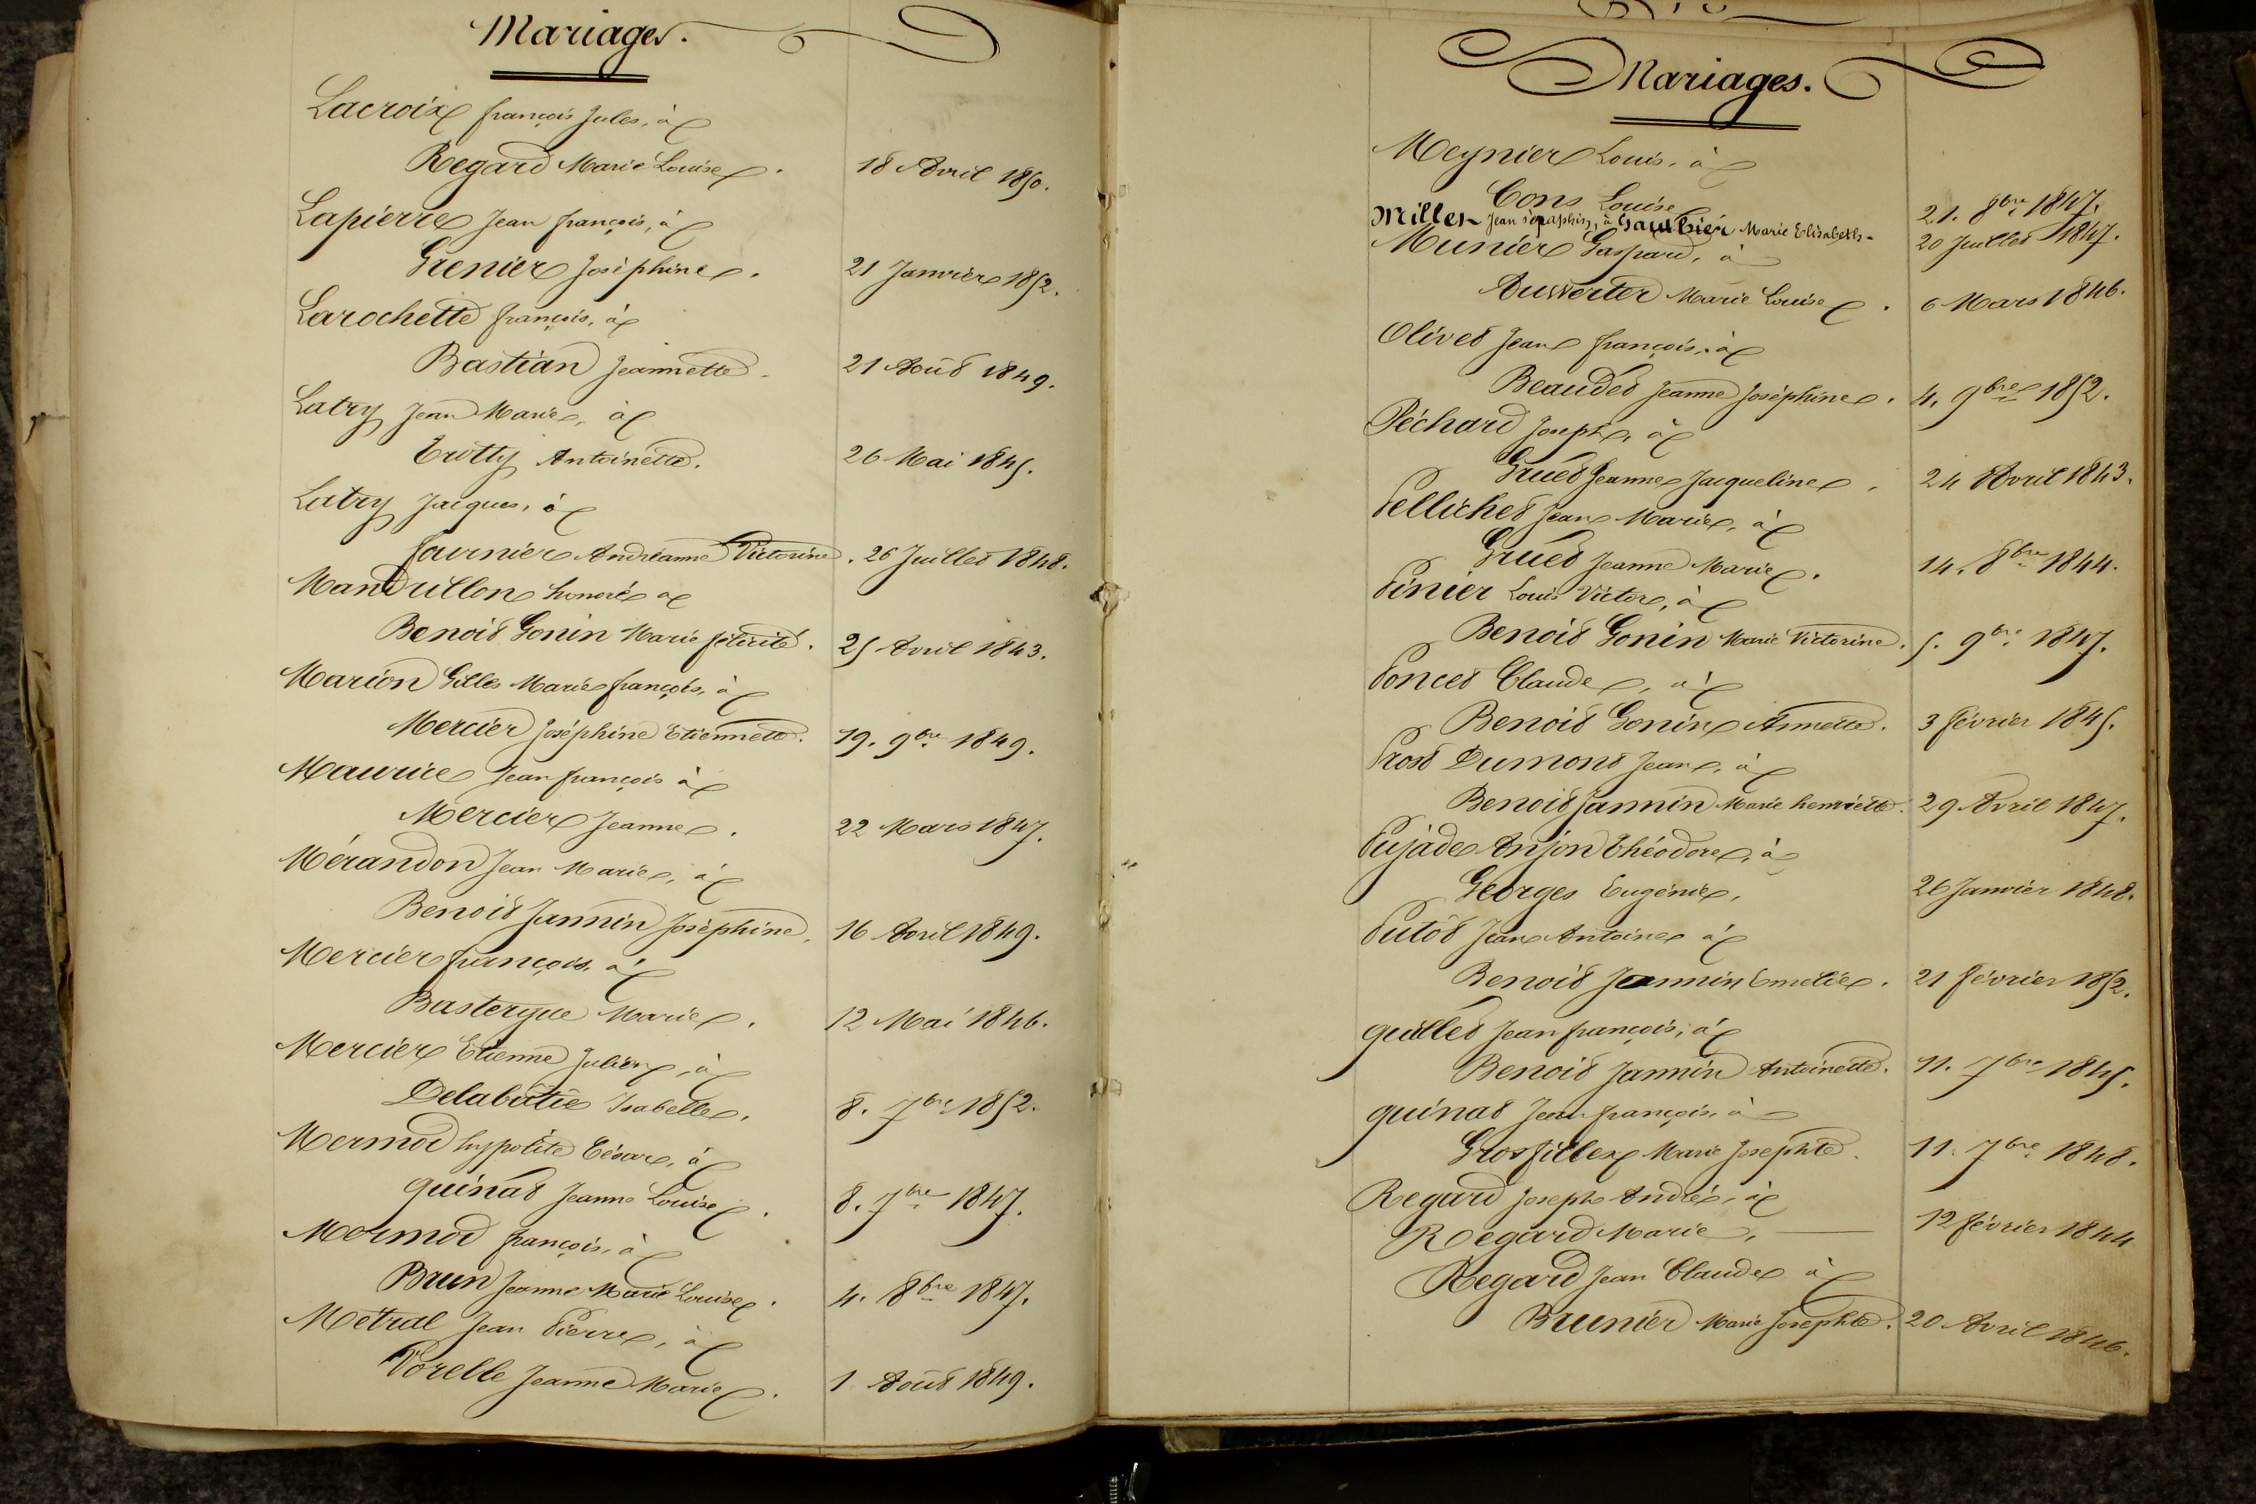 Mariages.
Lacroix françois Jules, à
Regard Marie Louise. 18 Avril 1850.
Lapierre Jean françois, à
Grenier Joséphine. 21 Janvier 1852.
Larochette françois, à
Bastian Jeannette. 21 Août 1849.
Latry Jean Marie, à
Trotty Antoinette. 26 Mai 1845.
Latry Jacques, à
fournier Andréanne Victorine. 26 Juillet 1848.
Mandrillon honoré à
Benoit Gonin Marie félicité. 25 Avril 1843.
Marion Gilles Marie françois, à
Mercier Joséphine Etiennette. 19. 9bre 1849.
Maurice Jean françois à
Mercier Jeanne. 22 Mars 1847.
Mérandon Jean Marie, à
Benoit Jannin Joséphine. 16 Avril 1849.
Mercier françois, à
Basterque Marie. 12 Mai 1846.
Mercier Etienne Julien, à
Delabatie Isabelle. 8. 7bre 1852.
Mermod hypolite César, à
quinat Jeanne Louise. 8. 7bre 1847.
Mermod françois, à
Brun Jeanne Marie Louise. 4. 8bre 1847.
Métral Jean Pierre, à
Vorelle Jeanne Marie. 1 Août 1849.
Mariages.
Meynier Louis, à
Cons Louise 21. 8bre 1847.
Miller Jean séraphin, à Gauthier Marie Elisabeth - 20 Juillet 1847.
Munier Gaspard, à
Duverter Marie Louise. 6 Mars 1846.
Olivet Jean françois, à
Beaudet Jeanne Joséphine. 4. 9bre 1852.
Péchard Joseph, à
Gruet Jeanne Jacqueline. 24 Avril 1843.
Pellichet Jean Marie, à
Gruet Jeanne Marie. 14. 8bre 1844.
Pinier Louis Victor, à
Benoit Gonin Marie Victorine. 5. 9bre 1847.
Poncet Claude, à
Benoit Gonin Annette. 3 février 1845.
Prost Dumont Jean, à
Benoit Jannin Marie henriette. 29 Avril 1847.
Pujade Anjon théodore, à
Georges Eugénie. 26 Janvier 1848.
Putôt Jean Antoine à
Benoit Jeannin Emelie. 21 février 1852.
quillet Jean françois, à
Benoit Jannin Antoinette. 11. 7bre 1845.
quinat Jean françois, à
Grosfillex Marie Josephte. 11. 7bre 1848.
Regard Joseph André, à
Regard Marie. 12 février 1844
Regard Jean Claude à
Brunier Marie Josephte. 20 Avril 1846.